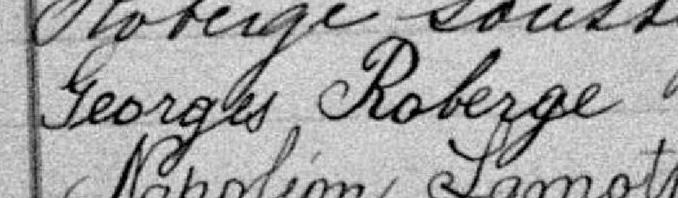 Roberge souss
Georges Roberge
Napoléon Lamott